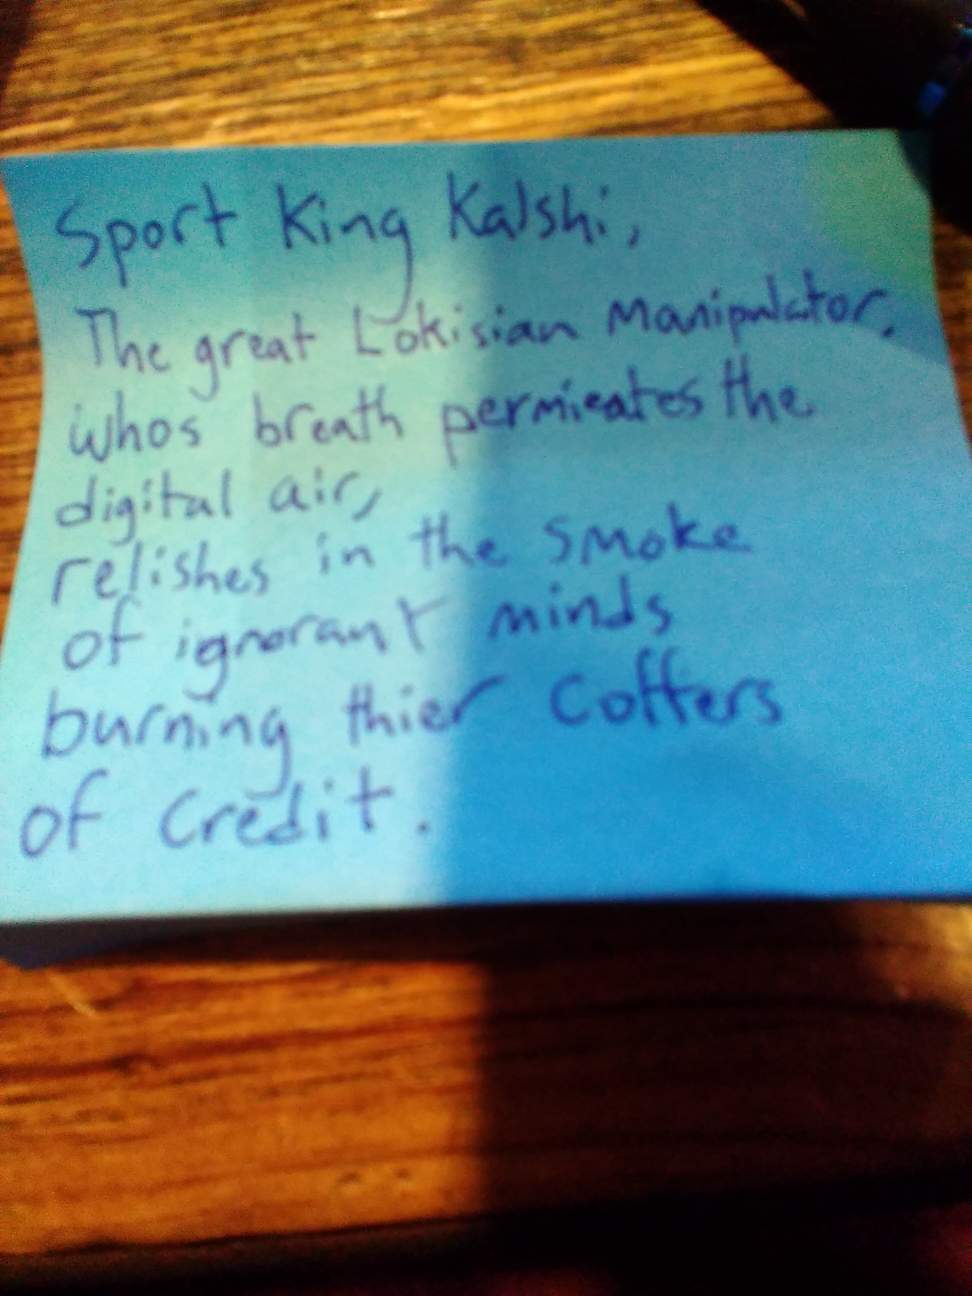 Sport King Kalshi,
The great Lokisian Manipulator,
whos breath permieates the
digital air,
relishes in the smoke
of ignorant minds
burning thier coffers
of credit.